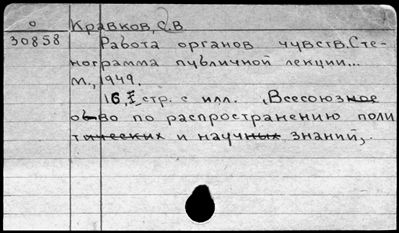 о Кравков, С.В
30858 Работа органов чувств. Сте-
нограмма публичной лекции...
М., 1949.
16 стр. с илл. Всесоюзное
об-во по распространению поли
тических и научных знаний,.